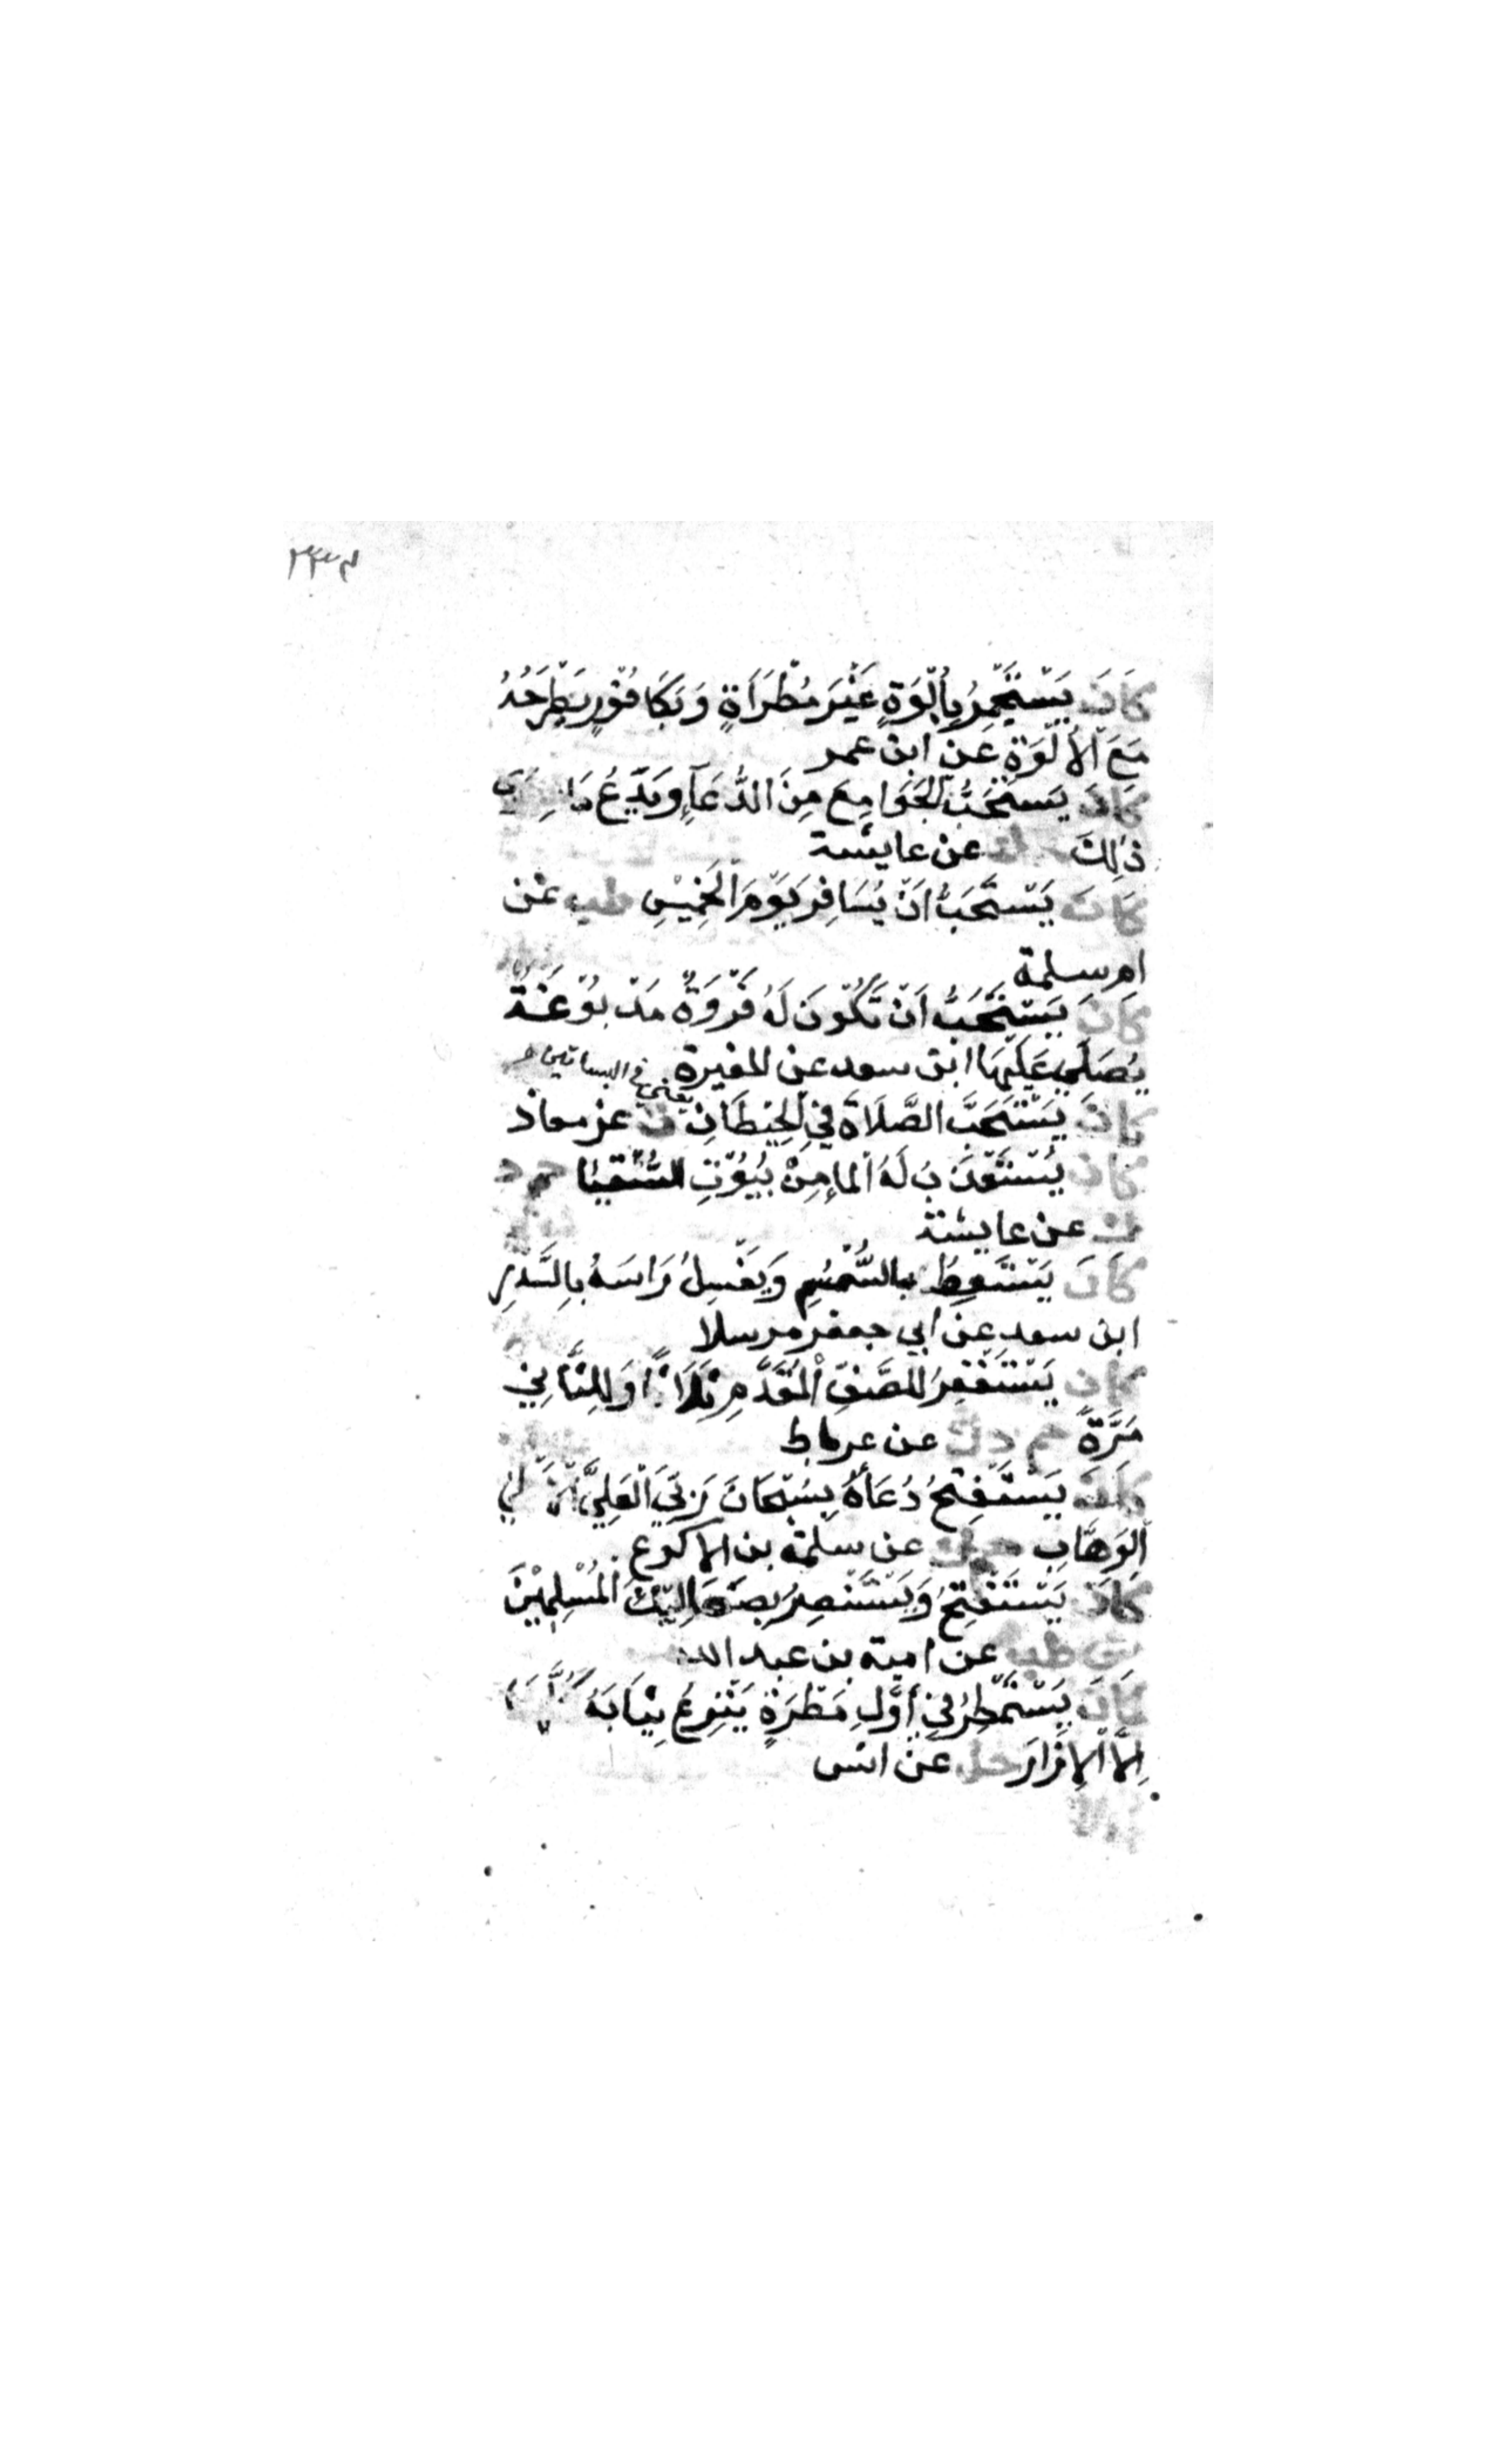 كَانَ يَسْتَجْمِرُ بِأَلُوَّةٍ غَيْرَ مُطَرَّاةٍ وَبِكَافُوْرٍ يَطْرَحُهُ
مَعَ الأَلُوَّةِ عَن ابن عمر
كَانَ يَسْتَحِبُّ الجَوَامِعَ مِنَ الدُّعَاءِ وَيَدَعُ مَا
ذٰلِكَ ك عن عايشة
كَانَ يَسْتَحِبُّ اَنْ يُسَافِرَ يَوْمَ الخَمِيْسِ طب عن
ام سلمة
كَانَ يَسْتَحِبُّ اَنْ تَكُوْنَ لَهُ فَرْوَةٌ مَدْبُوْغَةٌ
يُصَلِّي عَلَيْهَا ابن سعد عن المغيرة
يعني في البساتين
كَانَ يَسْتَحِبُّ الصَّلَاةَ فِي الحِيْطَانِ ت عن معاذ
كَانَ يُسْتَعْذَبُ لَهُ المَاءِ مِنْ بُيُوْتِ السُّقْيَا حم د
ك عن عايشة
كَانَ يَسْتَعِطُ بِالسُّمْسُمِ وَيَغْسِلُ رَاسَهُ بِالسِّدْرِ
ابن سعد عن أبي جعفر مرسلا
كَانَ يَسْتَغْفِرُ لِلصَّفِّ الْمُقَدَّمِ ثَلَاثًا وَلِلثَّانِي
مَرَّةً حم ه ك عن عرباض
كَانَ يَسْتَفْتِحُ دُعَاءَهُ بِسُبْحَانَ رَبِّيَ الْعَلِيِّ
الوَهَّابِ حم ك عن سلمة بن الاكوع
كَانَ يَسْتَفْتِحُ وَيَسْتَنْصِرُ بِصَعَالِيْكَ الْمُسْلِمِيْنَ
ش طب عن امية بن عبد الله
كَانَ يَسْتَمْطِرُ فِي أَوَّلِ مَطْرَةٍ يَنْزِعُ ثِيَابَهُ
اِلَّا الإِزَارَ حل عن انس